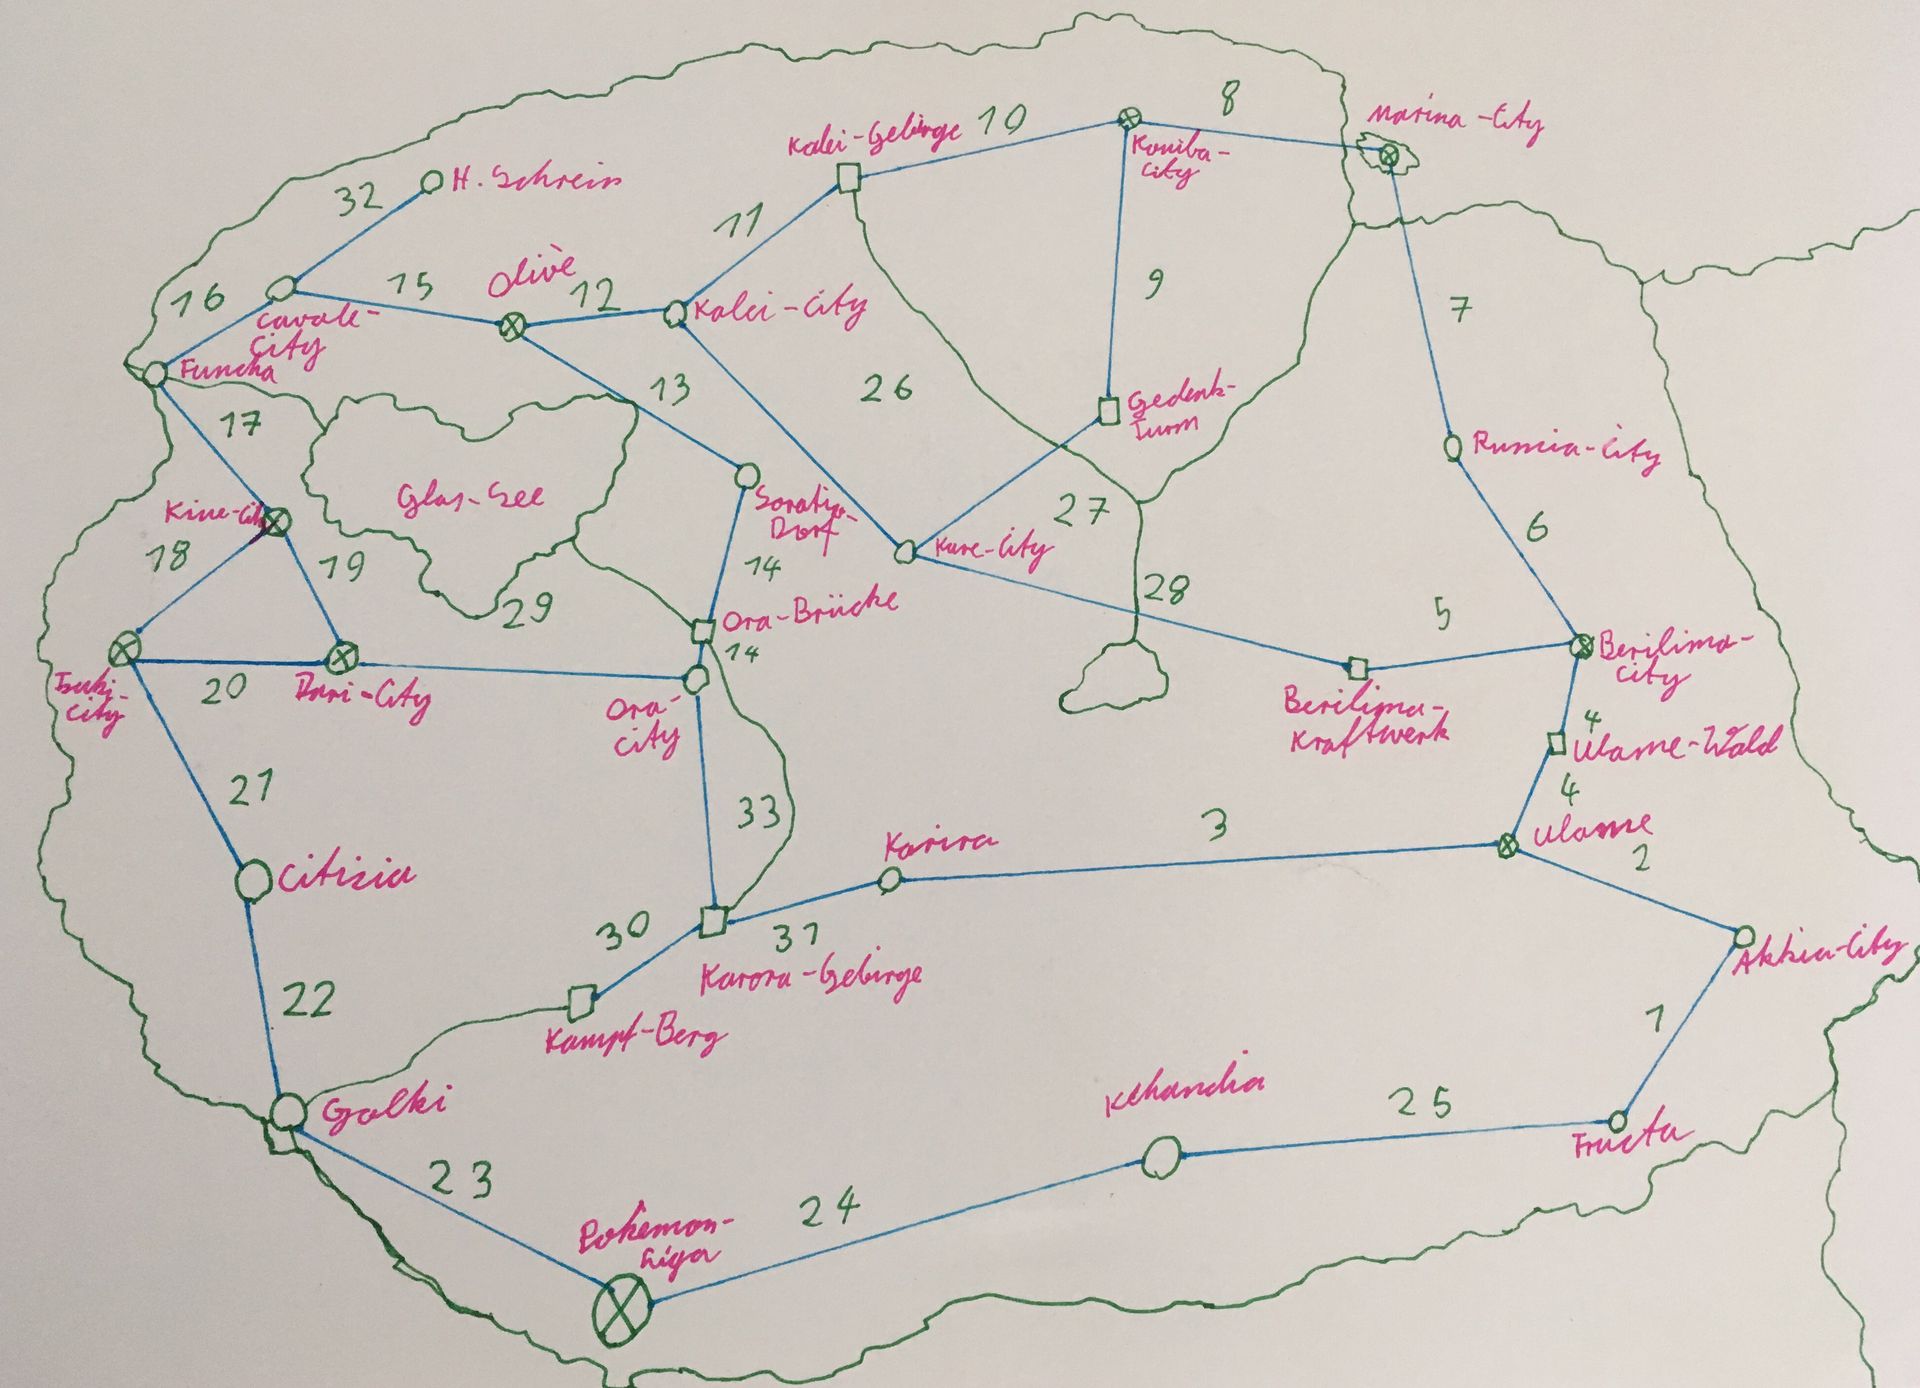 8
10
Marina-City
Kalei-Gebirge
Koniba-
City
32
H. Schrein
11
Olivè
16
15
12
Kalei-City
9
7
Cavale-
City
Funcha
13
26
Gedenk-
Turm
17
Rumia-City
Glas-See
Kine-City
27
6
Dorf
Kure-City
18
19
14
28
29
Ora-Brücke
5
14
Berilima-
City
20
Ora-
City
City
Berilima-
Kraftwerk
4
Ulame-Wald
21
33
4
3
Karira
Ulame
Citizia
2
30
31
Akkia-City
Karora-Gebirge
22
Kampf-Berg
1
Golki
Kehandia
25
Fructa
23
24
Pokemon-
Liga